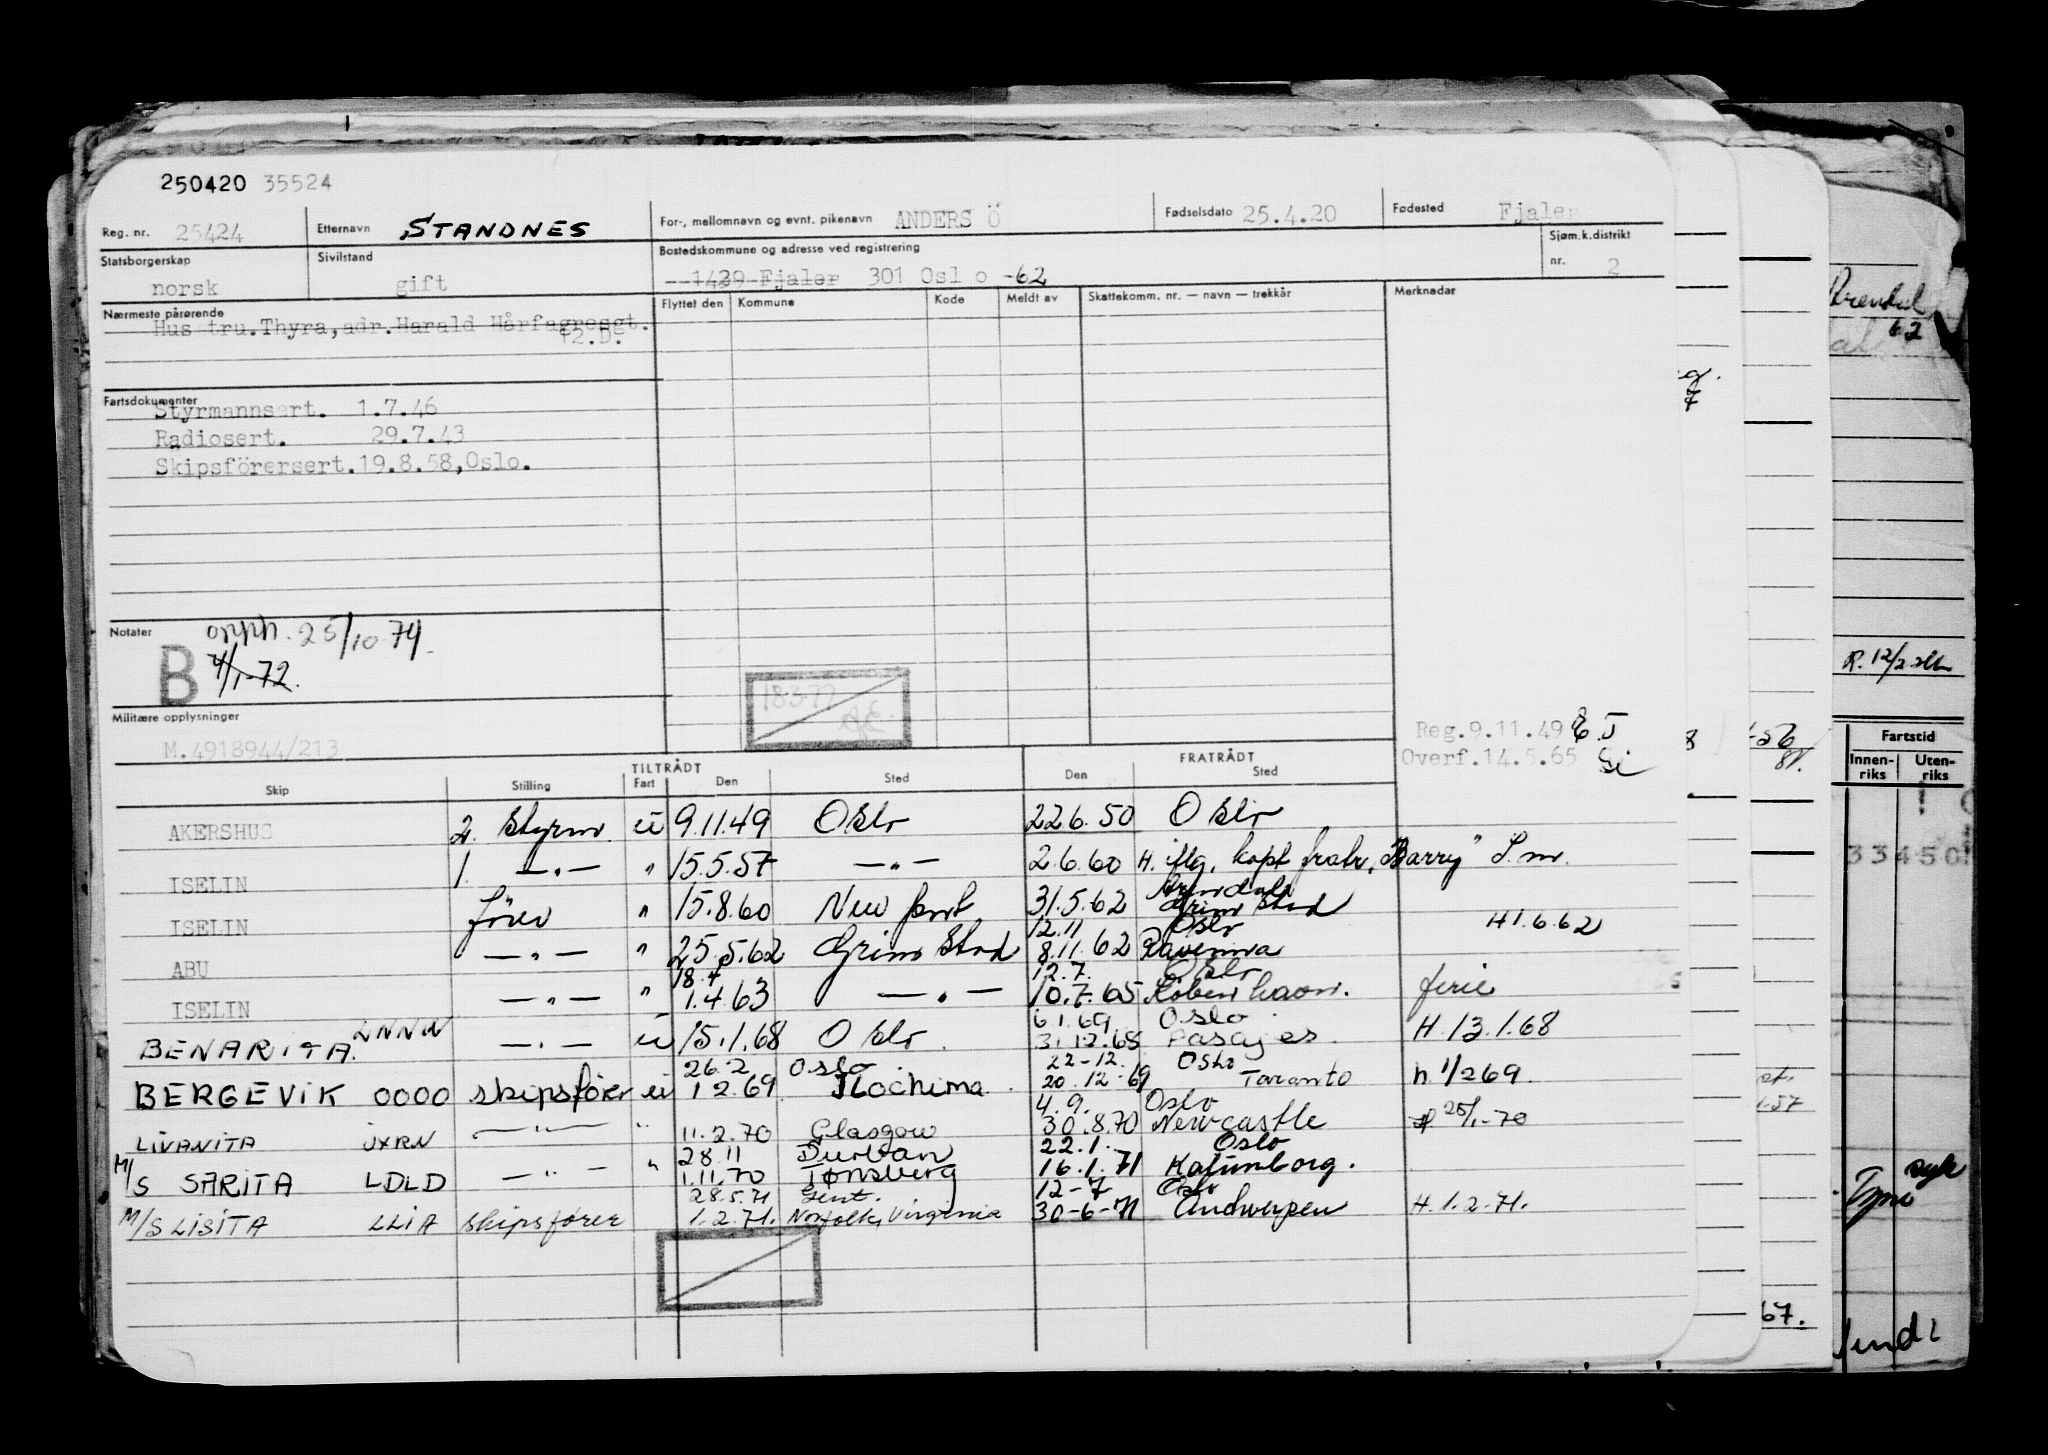 250420 35524
Reg. nr. 25424 Etternavn STANDNES For-, mellomnavn og evnt. pikenavn ANDERS Ö Fødselsdato 25.4.20 Fødested Fjaler
Statsborgerskap norsk Sivilstand gift Bostedskommune og adresse ved registrering 1429 Fjaler 301 Oslo -62 Sjøm.k.distrikt nr. 2
Nærmeste pårørende Flyttet den Kommune Kode Meldt av Skattekomm. nr. — navn — trekkår Merknader
Hustru.Thyra,adr.Harald Hårfagresgt.
12.D.
Fartsdokumenter
Styrmannsert. 1.7.46
Radiosert. 29.7.43
Skipsförersert.19.8.58,Oslo.
Notater
opph. 25/10 74.
B 4/1-72.
18377
Militære opplysninger
M.4918944/213
Reg.9.11.49 E.J
Overf.14.5.65
TILTRÅDT FRATRÅDT
Skip Stilling Fart Den Sted Den Sted
AKERSHUS 2. Styrm. u 9.11.49 Oslo 22 6.50 Oslo
ISELIN 1. —"— " 15.5.57 —"— 2.6.60 H. iflg. kapt fratr. "Barry" S.m.
Arendal
ISELIN förer " 15.8.60 New York 31.5.62 Grimstad H 1.6.62
12.11 Oslo
ABU —"— " 25.5.62 Grimstad 8.11.62 Ravenna
18.4 12.7. Oslo
ISELIN —"— " 1.4.63 —"— 10.7.65 Köbenhavn. ferie
6.1.69 Oslo
BENARITA. LNNW —"— u 15.1.68 Oslo. 31.12.68 Pasajes. H. 13.1.68
26.2 Oslo. 22-12. Oslo
BERGEVIK OOOO skipsfører u 1.2.69 Kochima. 20.12.69 Taranto h. 1/2 69.
4.9. Oslo
LIVANITA JXRN —"— " 11.2.70 Glasgow 30.8.70 Newcastle 25/1-70
28.11 Durban 22.1. Oslo
M/S SARITA LDLD —"— " 1.11.70 Tønsberg 16.1.71 Kalundborg.
28.5.71 Gent. 12-7 Oslo
M/S LISITA LLIA skipsfører 1.2.71. Norfolk, Virginia 30-6-71 Andwerpen H. 1.2.71.
Arendal
62
R. 12/2
Fartstid
Innen-riks Uten-riks
33450
67.